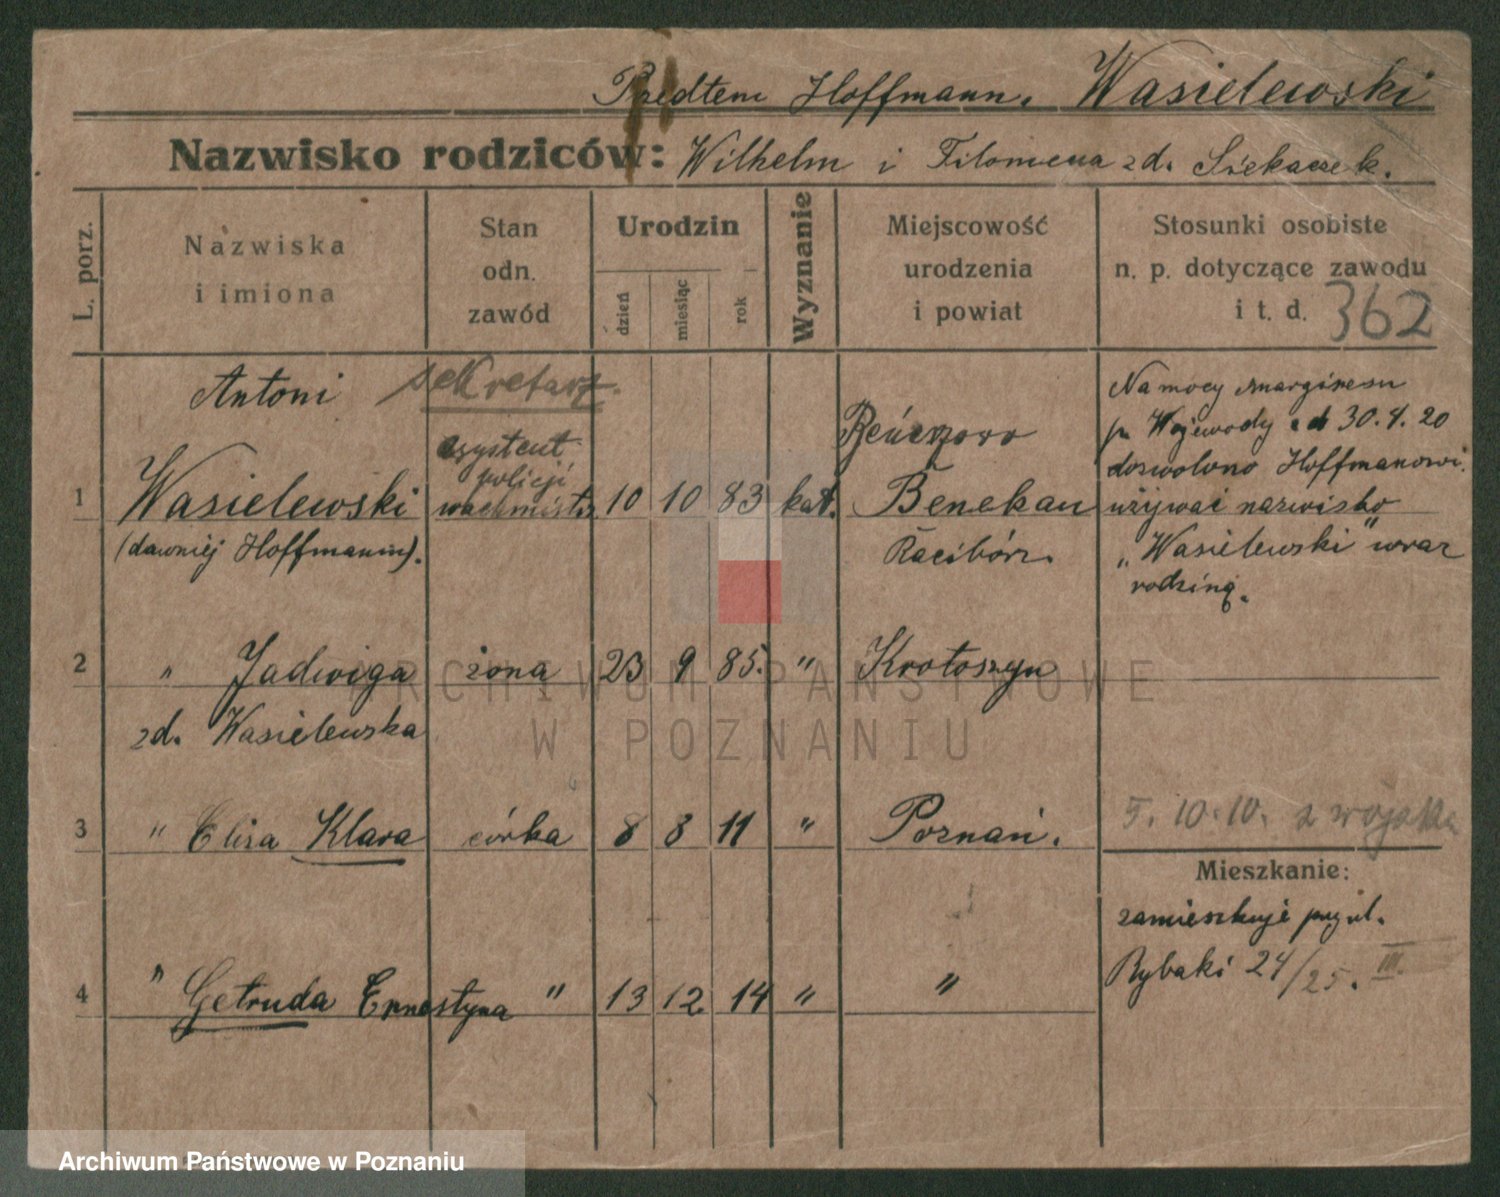 Przedtem Hoffmann. Wasielewski
Nazwisko rodziców: Wilhelm i Filomena zd. Siekaczek.
L. porz.
Nazwiska
i imiona
Stan
odn.
zawód
Urodzin
dzień
miesiąc
rok
Wyznanie
Miejscowość
urodzenia
i powiat
Stosunki osobiste
n. p. dotyczące zawodu
i t. d.
362
Antoni
sekretarz.
asystent
policji
wachmistrz
1
Wasielewski
(dawniej Hoffmann).
10
10
83
kat.
Benekau
Racibórz.
Na mocy
p. Wojewody z d 30.4.20
dozwolono Hoffmanowi
używać nazwisko
„Wasielewski" wraz
rodziną.
2
" Jadwiga
zd. Wasielewska
żona
23
9
85.
"
Krotoszyn
3
" Eliza Klara
córka
8
8
11
"
Poznań.
10.10.
Mieszkanie:
zamieszkuje przy ul.
Rybaki 24/25. III.
4
" Getruda Ernestyna
"
13
12.
14
"
"
ARCHIWUM PAŃSTWOWE
W POZNANIU
Archiwum Państwowe w Poznaniu